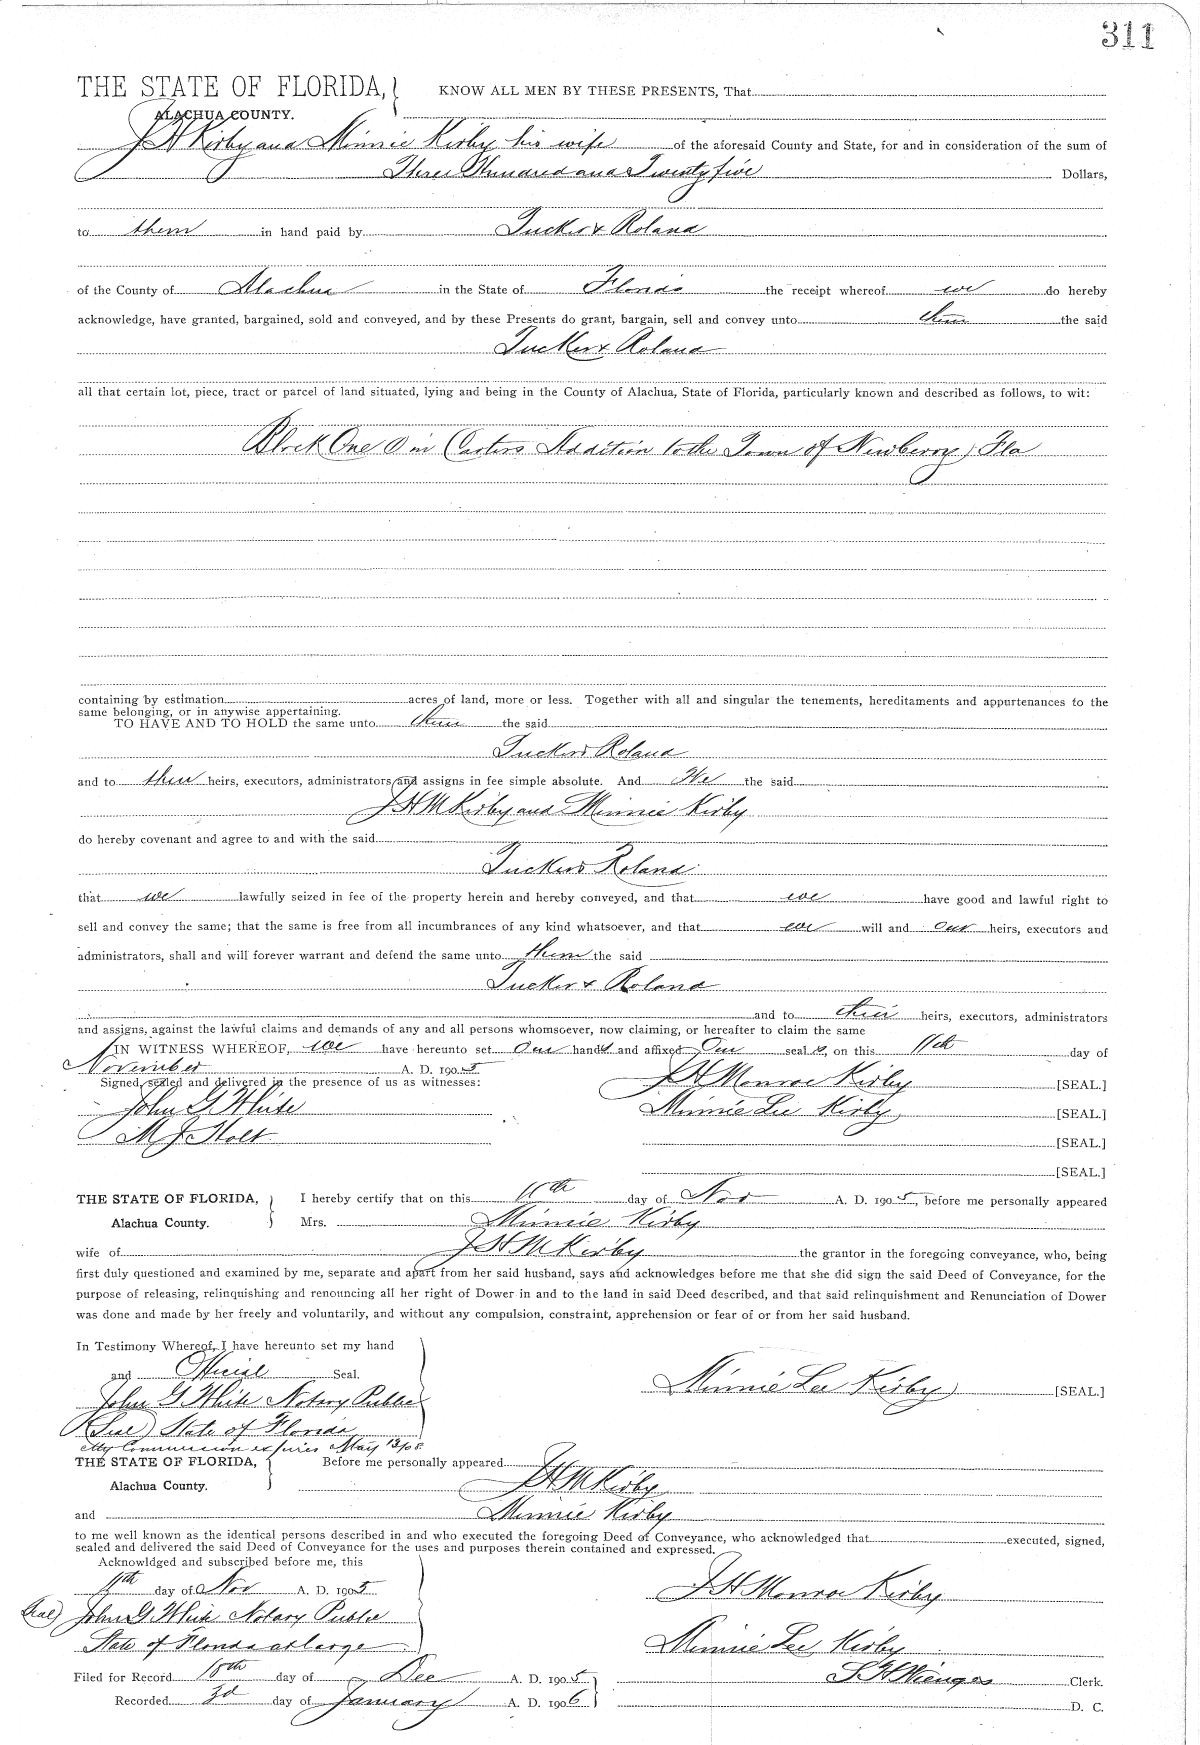 311
THE STATE OF FLORIDA, KNOW ALL MEN BY THESE PRESENTS, That
ALACHUA COUNTY.
J H Kirby and Minnie Kirby his wife of the aforesaid County and State, for and in consideration of the sum of
Three Hundred and Twenty five Dollars,
to them in hand paid by Tucker & Roland
of the County of Alachua in the State of Florida the receipt whereof we do hereby
acknowledge, have granted, bargained, sold and conveyed, and by these Presents do grant, bargain, sell and convey unto them the said
Tucker & Roland
all that certain lot, piece, tract or parcel of land situated, lying and being in the County of Alachua, State of Florida, particularly known and described as follows, to wit:
Block One in Carters Addition to the Town of Newberry, Fla
containing by estimation acres of land, more or less. Together with all and singular the tenements, hereditaments and appurtenances to the
same belonging, or in anywise appertaining.
TO HAVE AND TO HOLD the same unto them the said
Tucker & Roland
and to their heirs, executors, administrators and assigns in fee simple absolute. And We the said
J H M Kirby and Minnie Kirby
do hereby covenant and agree to and with the said
Tucker & Roland
that we lawfully seized in fee of the property herein and hereby conveyed, and that we have good and lawful right to
sell and convey the same; that the same is free from all incumbrances of any kind whatsoever, and that we will and our heirs, executors and
administrators, shall and will forever warrant and defend the same unto them the said
Tucker & Roland
and to their heirs, executors, administrators
and assigns, against the lawful claims and demands of any and all persons whomsoever, now claiming, or hereafter to claim the same
IN WITNESS WHEREOF, we have hereunto set our hands and affixed Our seal s, on this 11th day of
November A. D. 1905
Signed, sealed and delivered in the presence of us as witnesses: J H Monroe Kirby [SEAL.]
John G White Minnie Lee Kirby [SEAL.]
M J Holt [SEAL.]
[SEAL.]
THE STATE OF FLORIDA, I hereby certify that on this 11th day of Nov A. D. 1905, before me personally appeared
Alachua County. Mrs. Minnie Kirby
wife of J H M Kirby the grantor in the foregoing conveyance, who, being
first duly questioned and examined by me, separate and apart from her said husband, says and acknowledges before me that she did sign the said Deed of Conveyance, for the
purpose of releasing, relinquishing and renouncing all her right of Dower in and to the land in said Deed described, and that said relinquishment and Renunciation of Dower
was done and made by her freely and voluntarily, and without any compulsion, constraint, apprehension or fear of or from her said husband.
In Testimony Whereof, I have hereunto set my hand
and Official Seal. Minnie Lee Kirby [SEAL.]
John G White Notary Public
(Seal) State of Florida
My Commission expires May
THE STATE OF FLORIDA, Before me personally appeared
Alachua County. J H M Kirby
and Minnie Kirby
to me well known as the identical persons described in and who executed the foregoing Deed of Conveyance, who acknowledged that executed, signed,
sealed and delivered the said Deed of Conveyance for the uses and purposes therein contained and expressed.
Acknowldged and subscribed before me, this
11th day of Nov A. D. 1905 J H Monroe Kirby
(Seal) John G White Notary Public
State of Florida at large Minnie Lee Kirby
Filed for Record 18th day of Dec A. D. 1905 S H Wienges Clerk.
Recorded 3d day of January A. D. 1906 D. C.